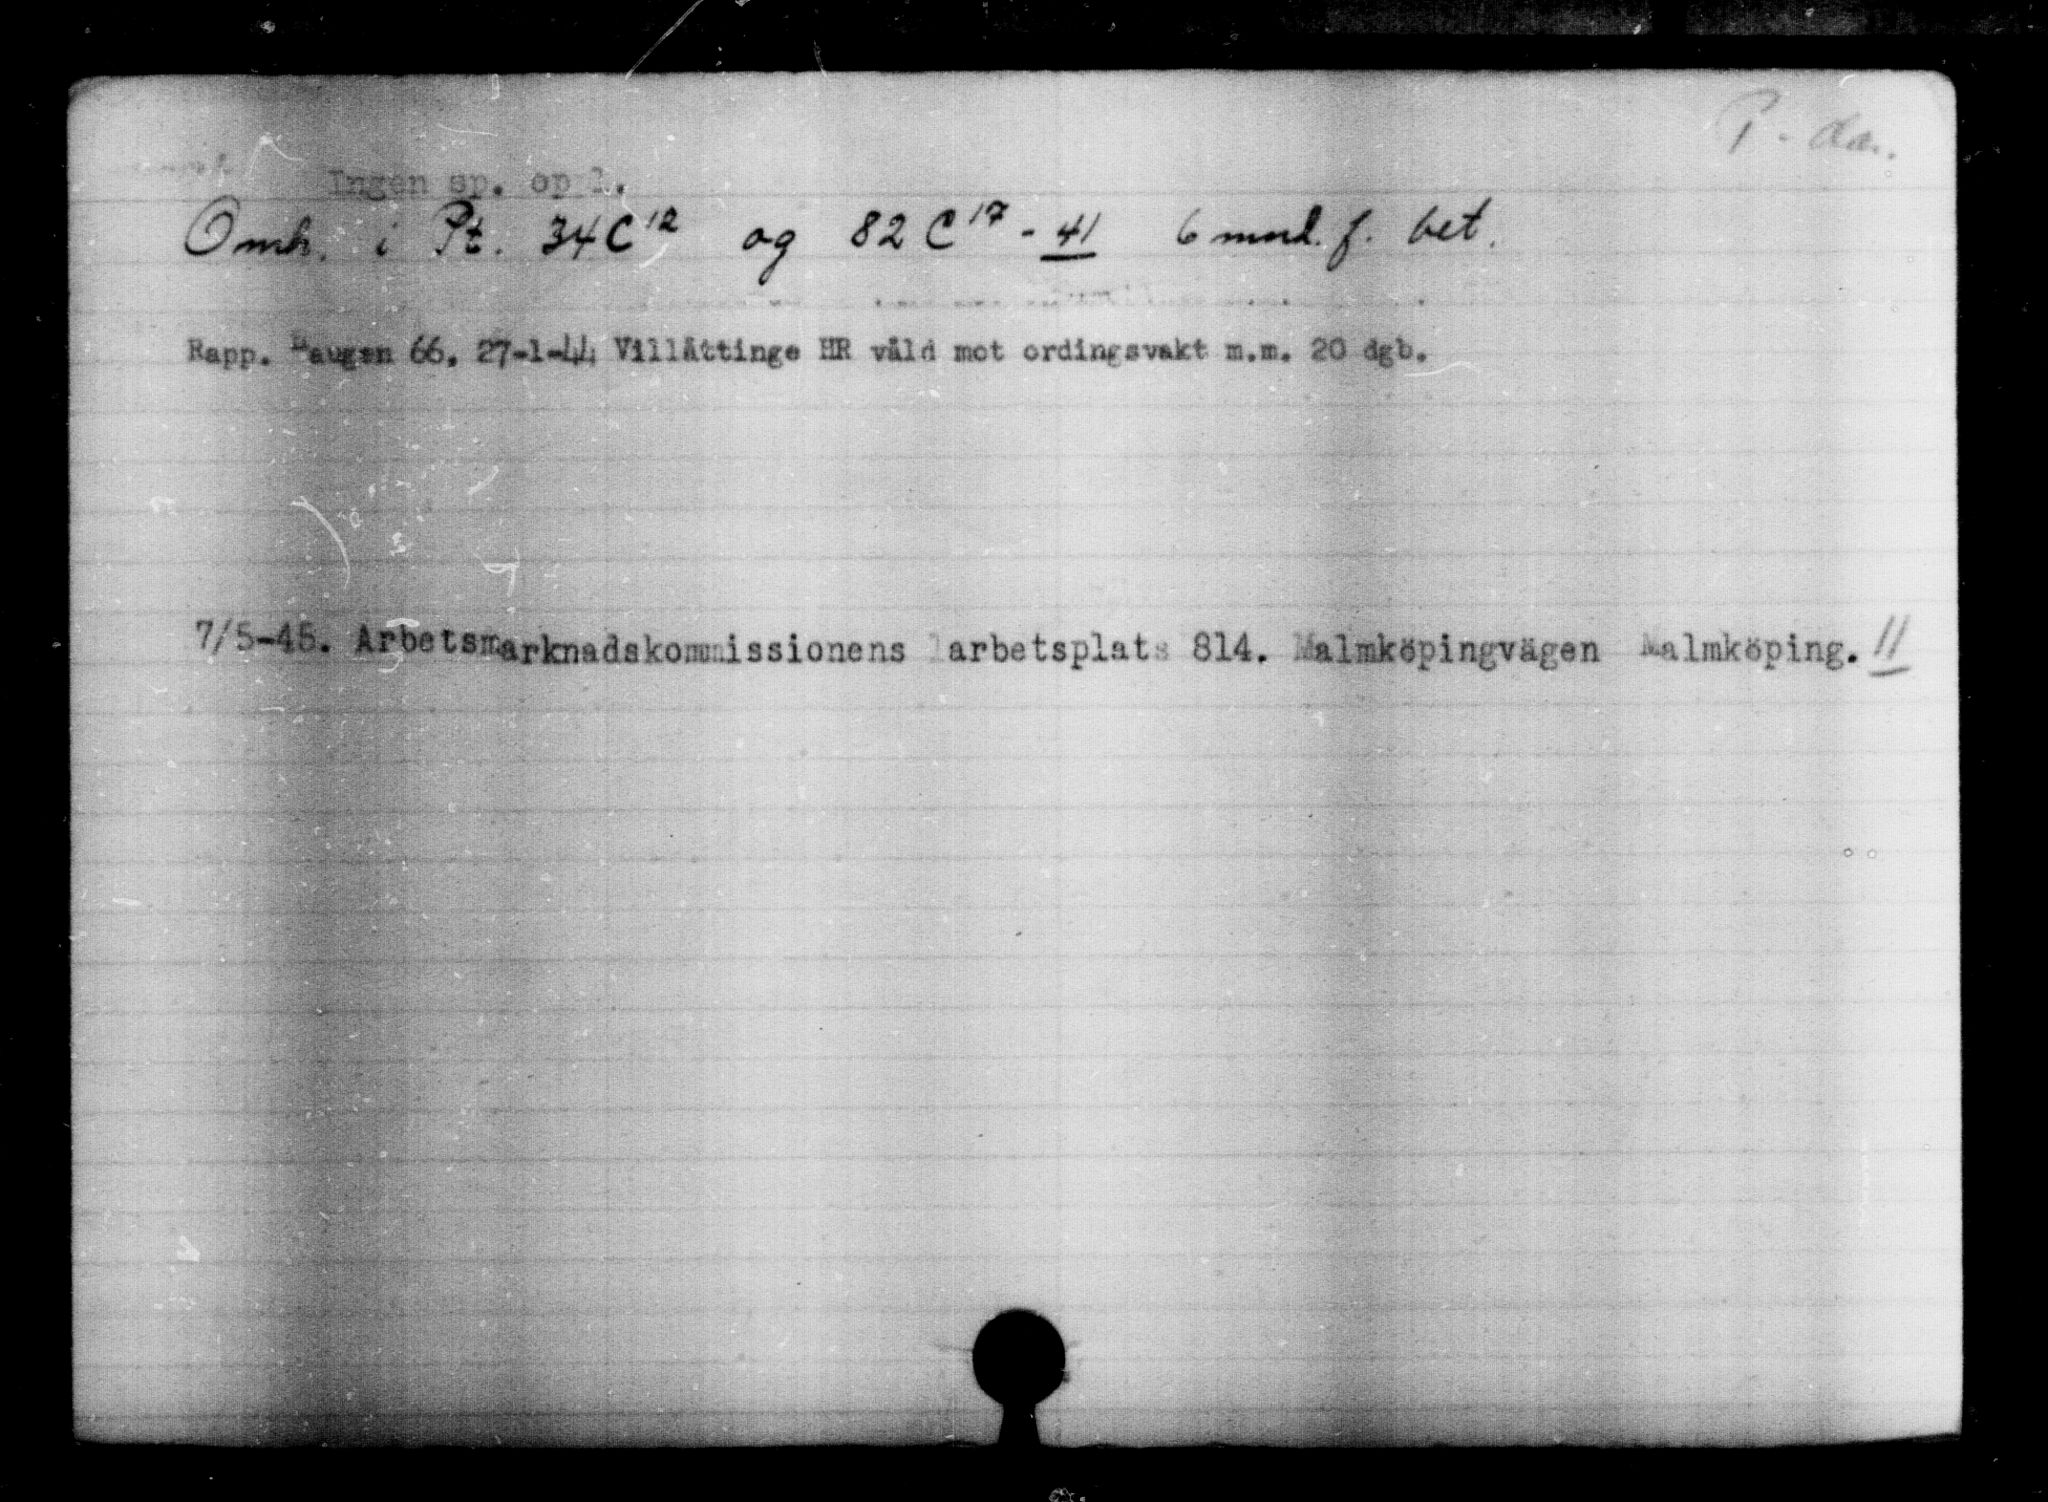 P-
Ingen sp. oppl.
Omh. i Pt. 34C¹² og 82C¹⁷-41 6 mnd. f. bet.
Rapp. Haugen 66, 27-1-44 Villättinge HR våld mot ordingsvakt m.m. 20 dgb.
7/5-45. Arbetsmarknadskommissionens arbetsplats 814. Malmköpingvägen Malmköping. 11